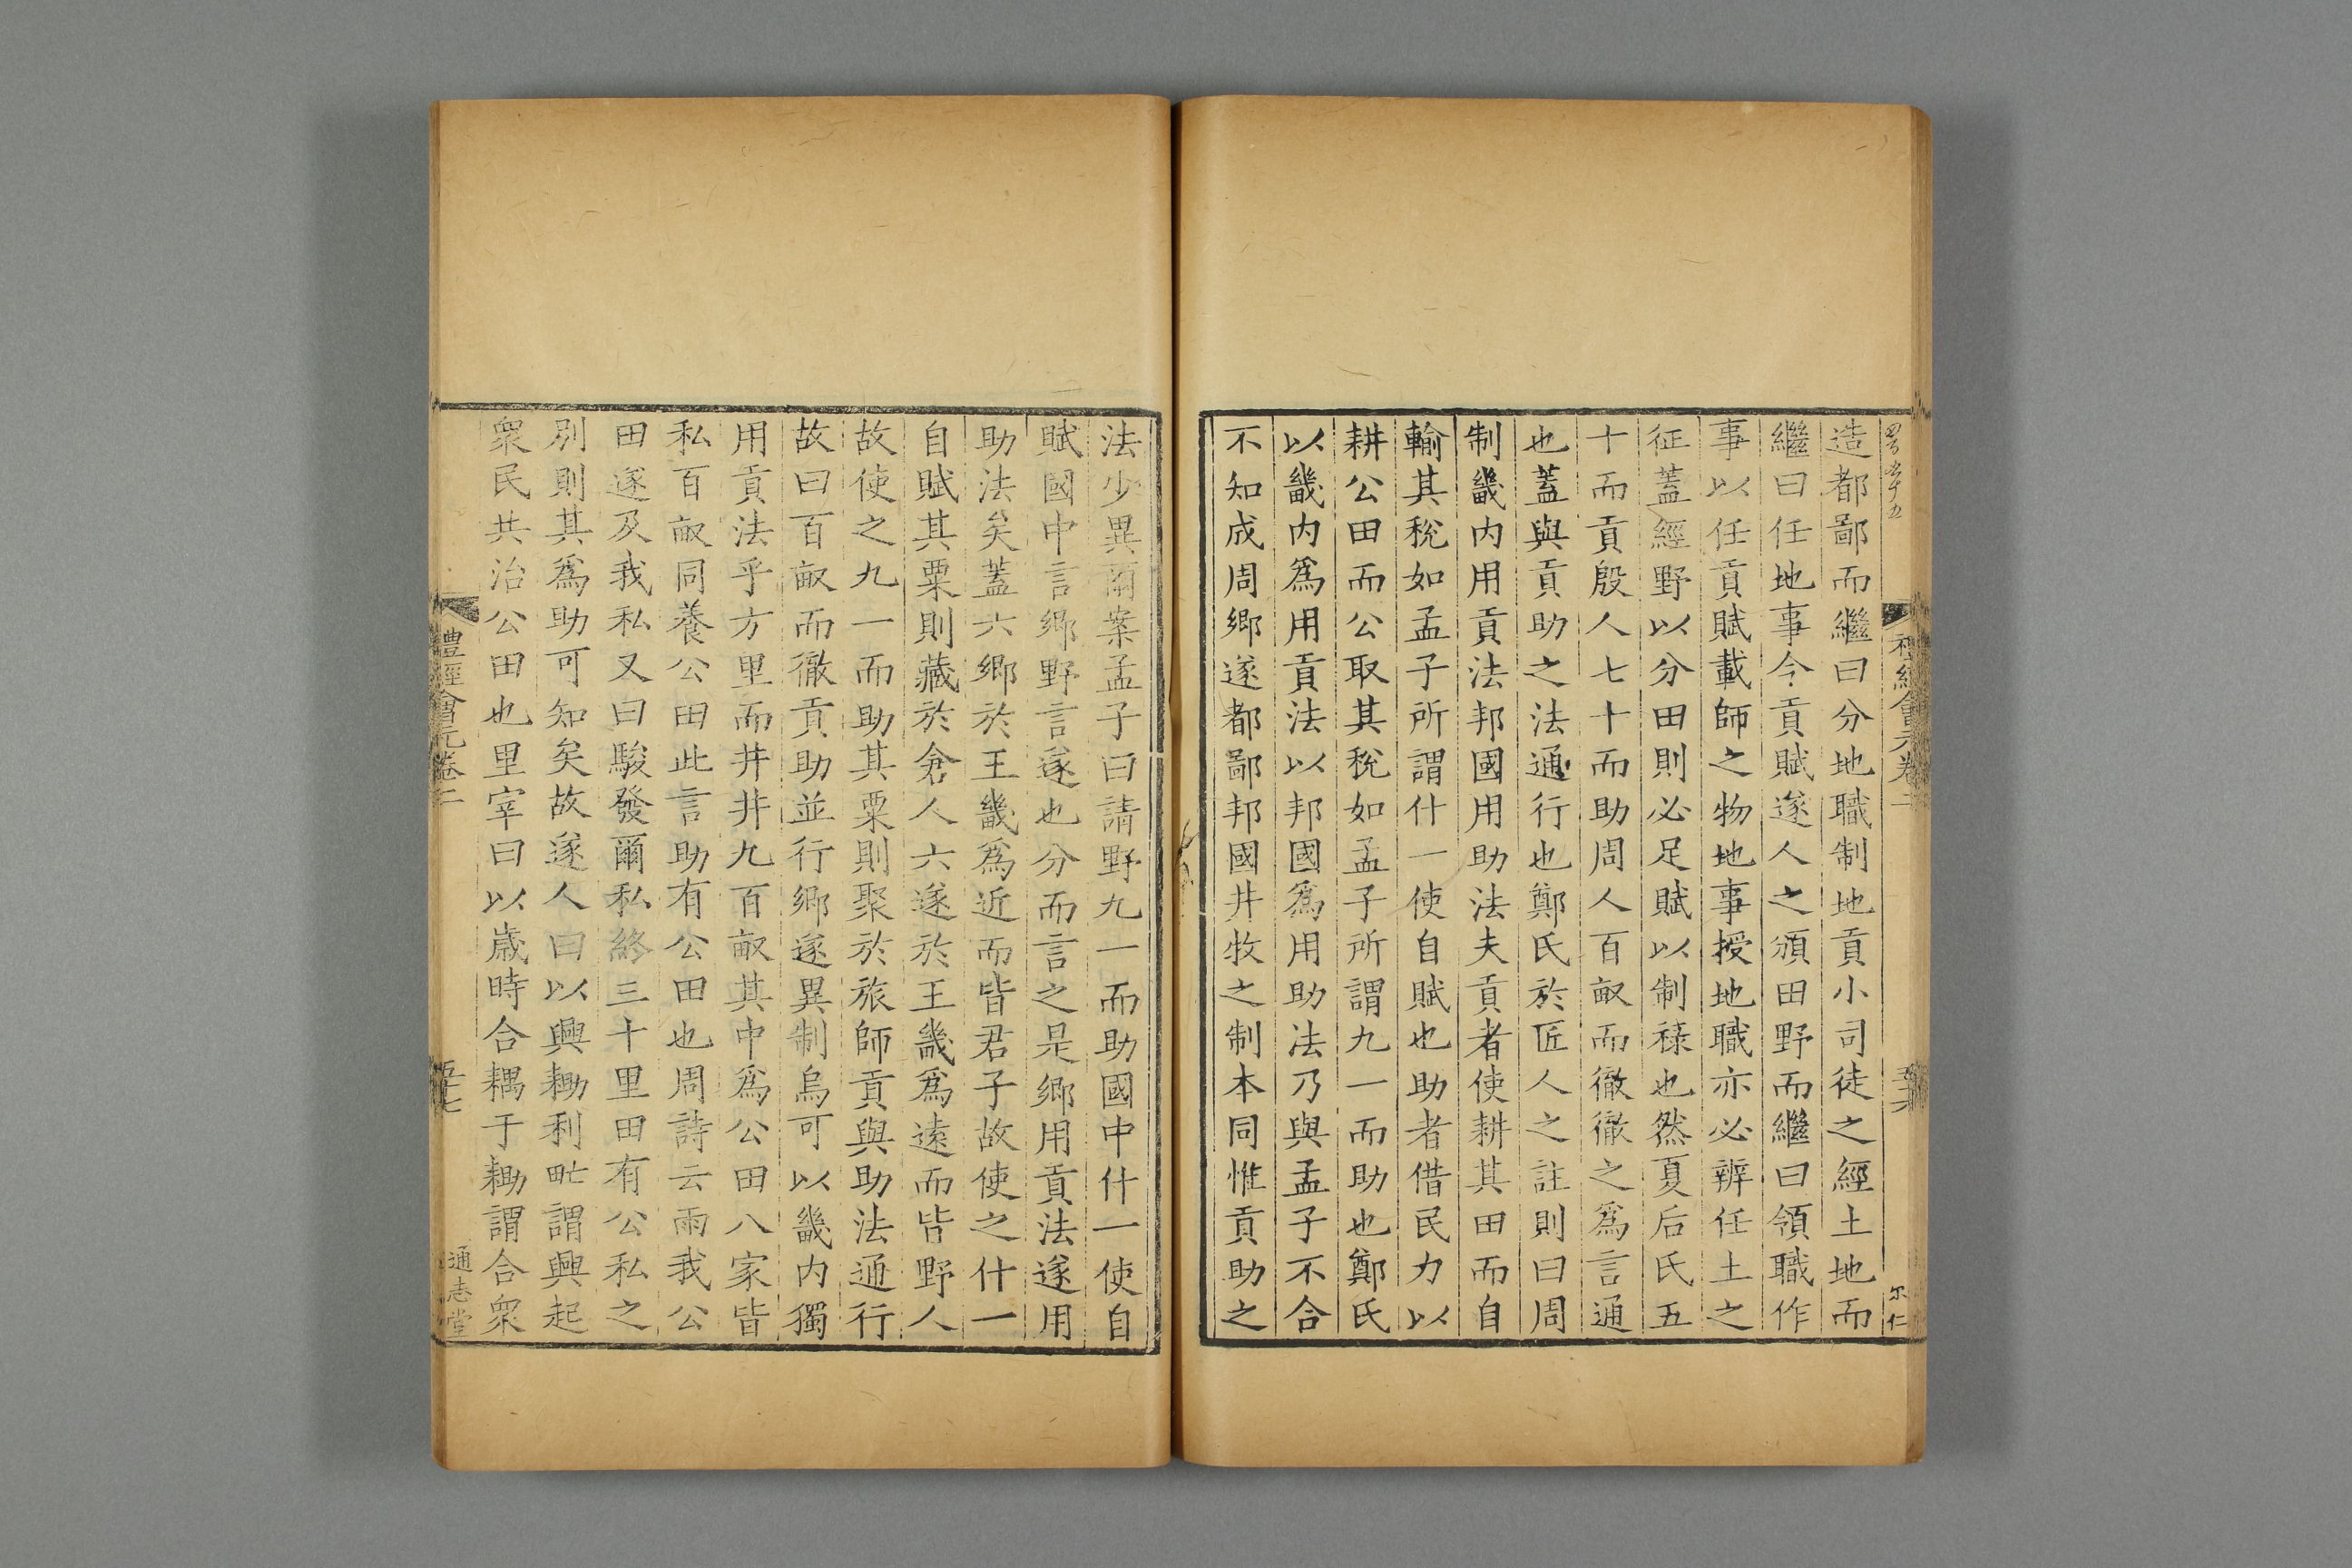 造都鄙而繼曰分地職制地貢小司徒之經土地而
繼曰任地事令貢賦遂人之頒田野而繼曰領職作
事以任貢賦載師之物地事授地職亦必辨任土之
征蓋經野以分田則必足賦以制祿也然夏后氏五
十而貢殷人七十而助周人百畝而徹徹之爲言通
也蓋與貢助之法通行也鄭氏於匠人之註則曰周
制畿内用貢法邦國用助法夫貢者使耕其田而自
輸其稅如孟子所謂什一使自賦也助者借民力以
耕公田而公取其稅如孟子所謂九一而助也鄭氏
以畿内爲用貢法以邦國爲用助法乃與孟子不合
不知成周鄉遂都鄙邦國井牧之制本同惟貢助之
法少異爾案孟子曰請野九一而助國中什一使自
賦國中言鄉野言遂也分而言之是鄉用貢法遂用
助法矣蓋六鄉於王畿爲近而皆君子故使之什一
自賦其粟則藏於倉人六遂於王畿爲遠而皆野人
故使之九一而助其粟則聚於旅師貢與助法通行
故曰百畝而徹貢助並行鄉遂異制烏可以畿内獨
用貢法乎方里而井井九百畝其中爲公田八家皆
私百畝同養公田此言助有公田也周詩云雨我公
田遂及我私又曰駿發爾私終三十里田有公私之
别則其爲助可知矣故遂人曰以興耡利甿謂興起
衆民共治公田也里宰曰以歲時合耦于耡謂合衆
禮經會元卷二
五十七
通志堂